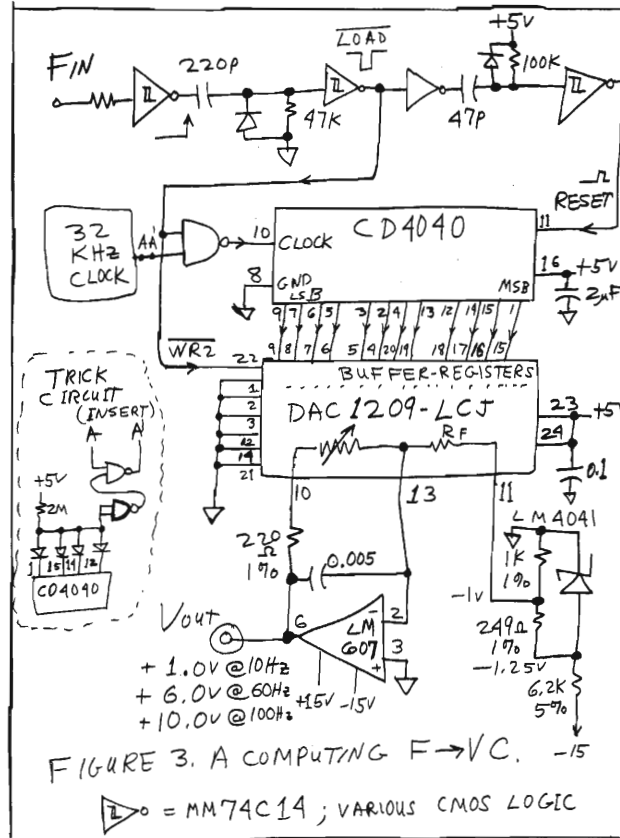 FIN
220P
47K
LOAD
47P
+5V
100K
RESET
32
KHz
CLOCK
A A'
10
CLOCK
CD4040
11
16
+5V
2µF
8
GND
LSB
MSB
9 7 6 5 3 2 4 13 12 14 15 1
9 8 7 6 5 4 20 19 18 17 16 15
WR2
22
BUFFER-REGISTERS
DAC 1209-LCJ
1
2
3
12
14
21
23
+5V
24
0.1
RF
10
13
11
TRICK
CIRCUIT
(INSERT)
A
A'
+5V
2M
1 15 14 12
CD4040
220
Ω
1%
0.005
LM4041
1K
1%
-1V
249Ω
1%
-1.25V
6.2K
5%
-15
Vout
6
LM
607
-
2
3
+
+15V
-15V
+ 1.0V @10Hz
+ 6.0V @60Hz
+10.0V @100Hz
FIGURE 3. A COMPUTING F→VC.
= MM74C14 ; VARIOUS CMOS LOGIC